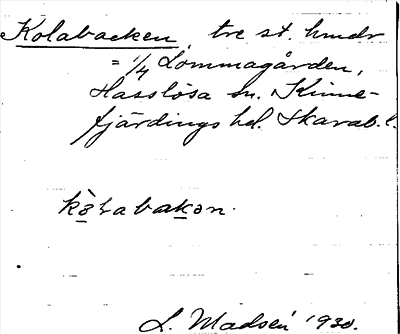 Kolabacken, tre st. hmdr
= 1/4 Lommagården,
Hasslösa sn. Kinne-
fjärdings hd. Skarab. l.
kòlabakən.
L. Madsén 1930.